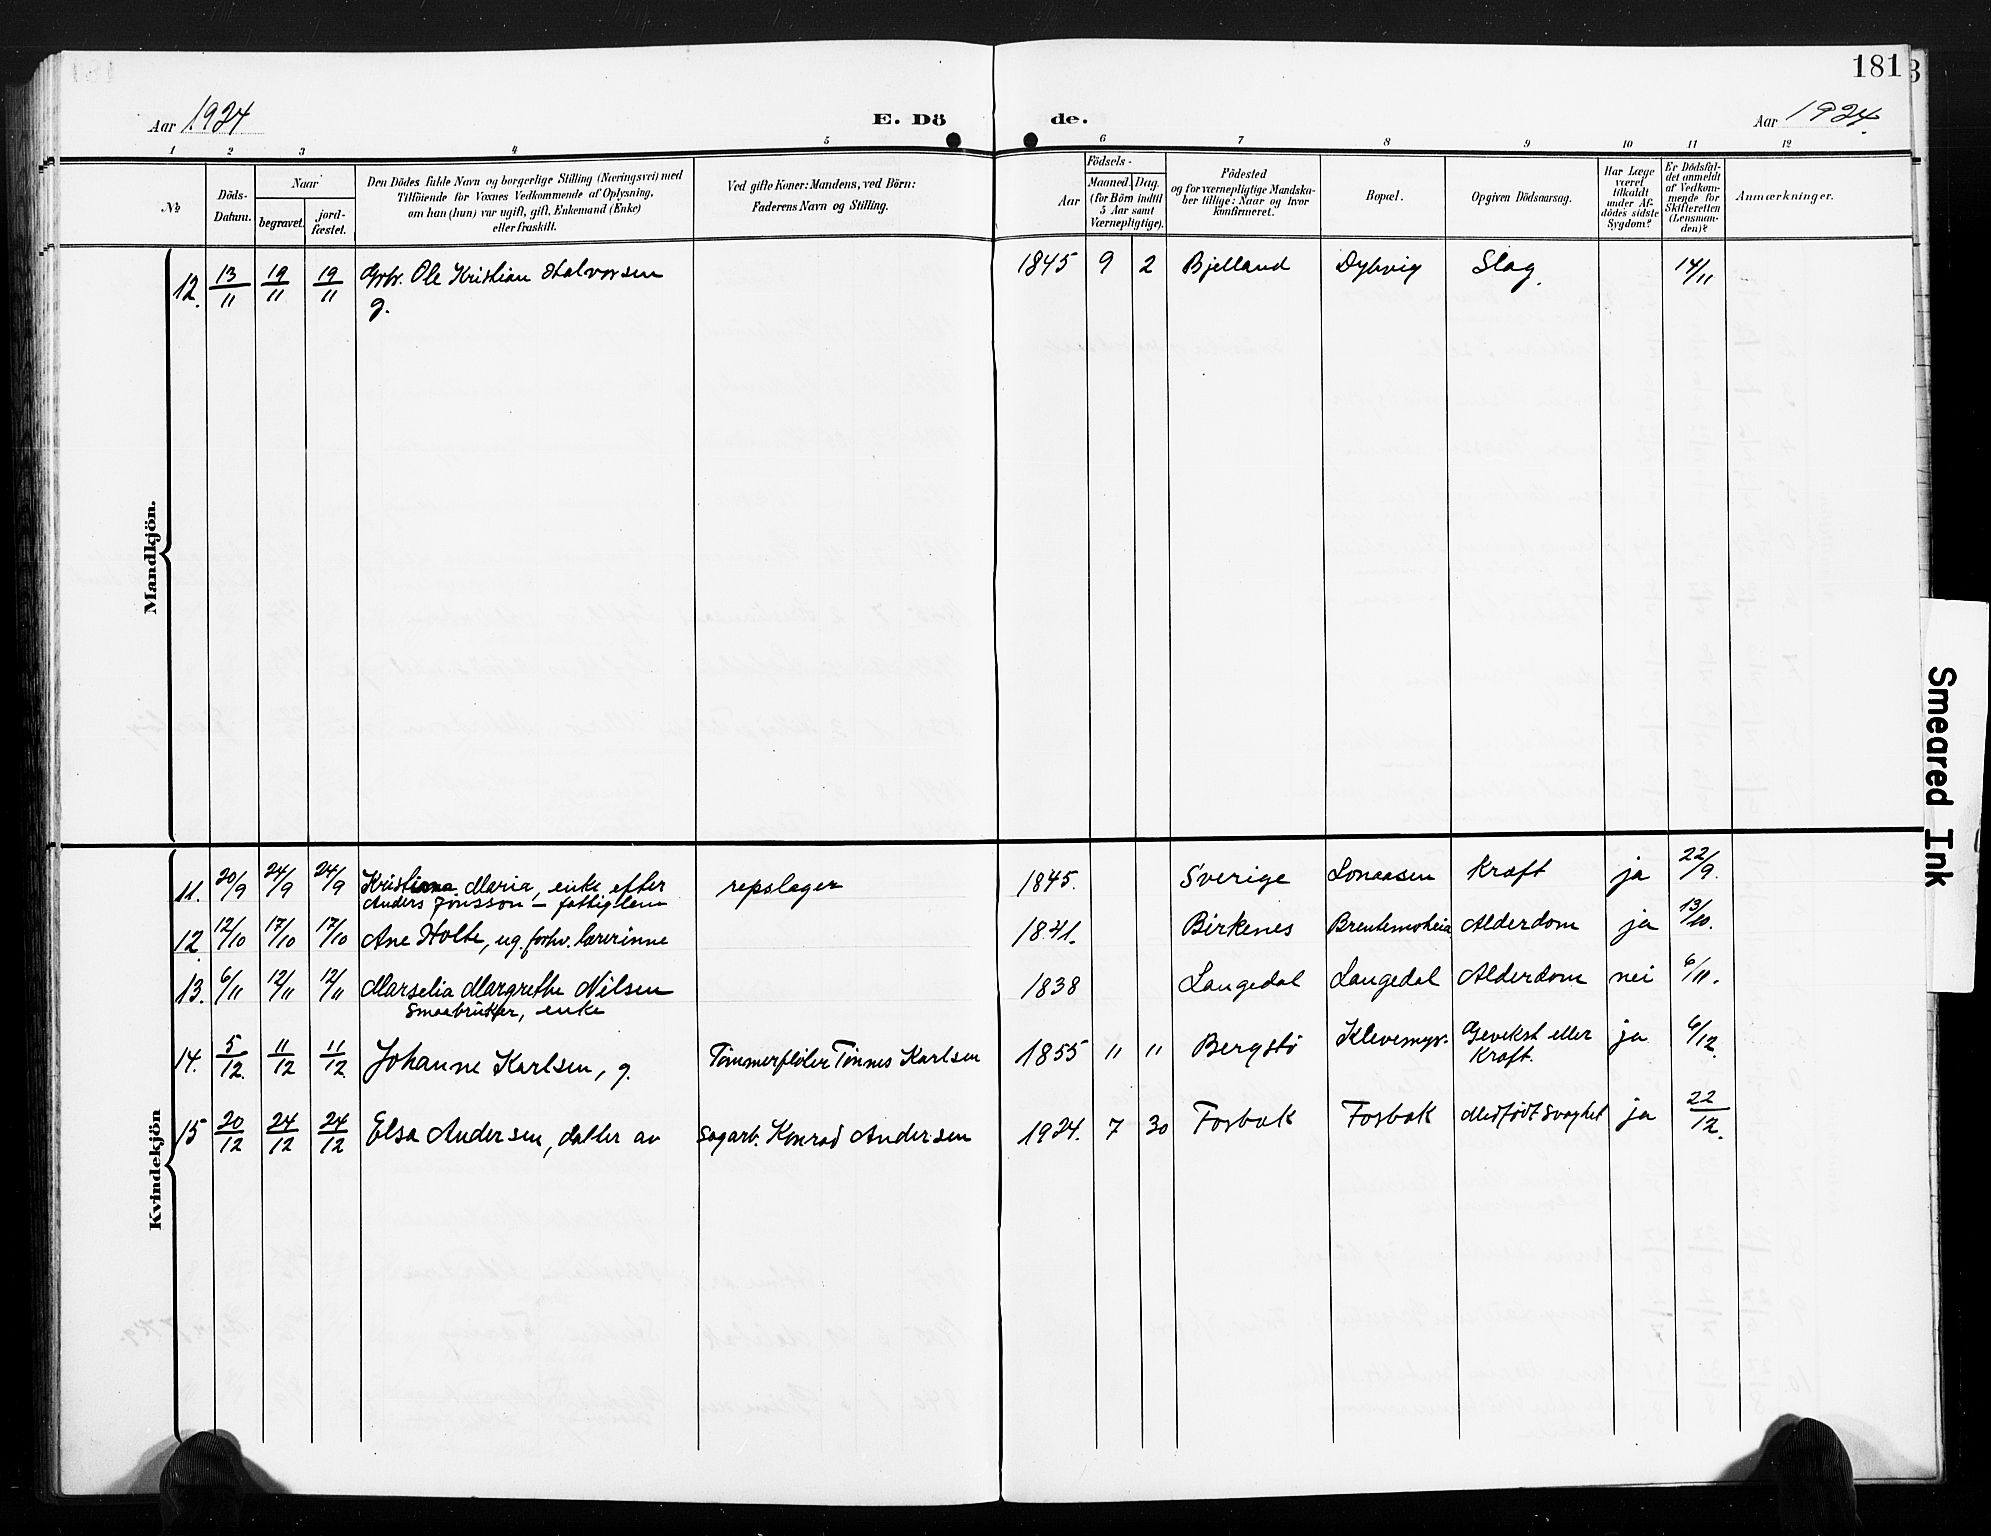 181
Aar 1924
E. Dö de.
Aar 1924.
1 2 3 4 5 6 7 8 9 10 11 12
№
Döds-
Datum.
Naar
begravet.
jord-
fæstet.
Den Dödes fulde Navn og borgerlige Stilling (Næringsvei) med
Tilföiende for Voxnes Vedkommende af Oplysning,
om han (hun) var ugift, gift, Enkemand (Enke)
eller fraskilt.
Ved gifte Koner: Mandens, ved Börn:
Faderens Navn og Stilling.
Födsels-
Aar
Maaned. Dag.
(for Börn indtil
5 Aar samt
Værnepligtige).
Födested
og for værnepligtige Mandska-
ber tillige: Naar og hvor
konfirmeret.
Bopæl.
Opgiven Dödsaarsag.
Har Læge
været
tilkaldt
under Af-
dödes sidste
Sygdom?
Er Dödsfal-
det anmeldt
af Vedkom-
mende for
Skifteretten
(Lensman-
den)?
Anmærkninger.
Mandkjön.
12. 13/11 19/11 19/11 Grbr. Ole Kristian Halvorsen 1845 9 2 Bjelland Dybvig Slag. 14/11
g.
Kvindekjön
11. 20/9 24/9 24/9 Kristiana Maria, enke efter repslager 1845. Sverige Lonaasen Kræft ja 22/9.
Anders Jonsson – fattiglem
12. 12/10 17/10 17/10 Ane Holte, ug. forhv. lærerinne 1841. Birkenes Brentemoheia Alderdom ja 13/10.
13. 6/11 12/11 12/11 Marselia Margrethe Nilsen 1838 Langedal Langedal Alderdom nei 6/11.
Smaabruker, enke
14. 5/12. 11/12 11/12. Johanne Karlsen, g. Tømmerfløter Tønnes Karlsen 1855 " " Bergstø Klevemyr. Gevekst eller ja 6/12.
Kræft.
15 20/12 24/12 24/12 Elsa Andersen, datter av Sagarb. Konrad Andersen 1924. 7 30 Fosbæk Fosbæk Medfødt svaghet ja 22/12.
Smeared Ink